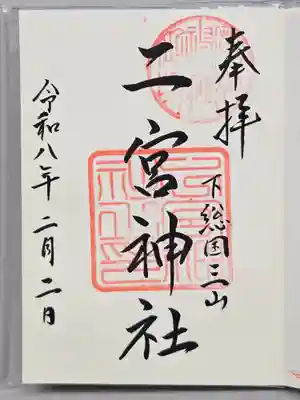 奉拝
下総国三山
二宮神社
令和八年二月二日